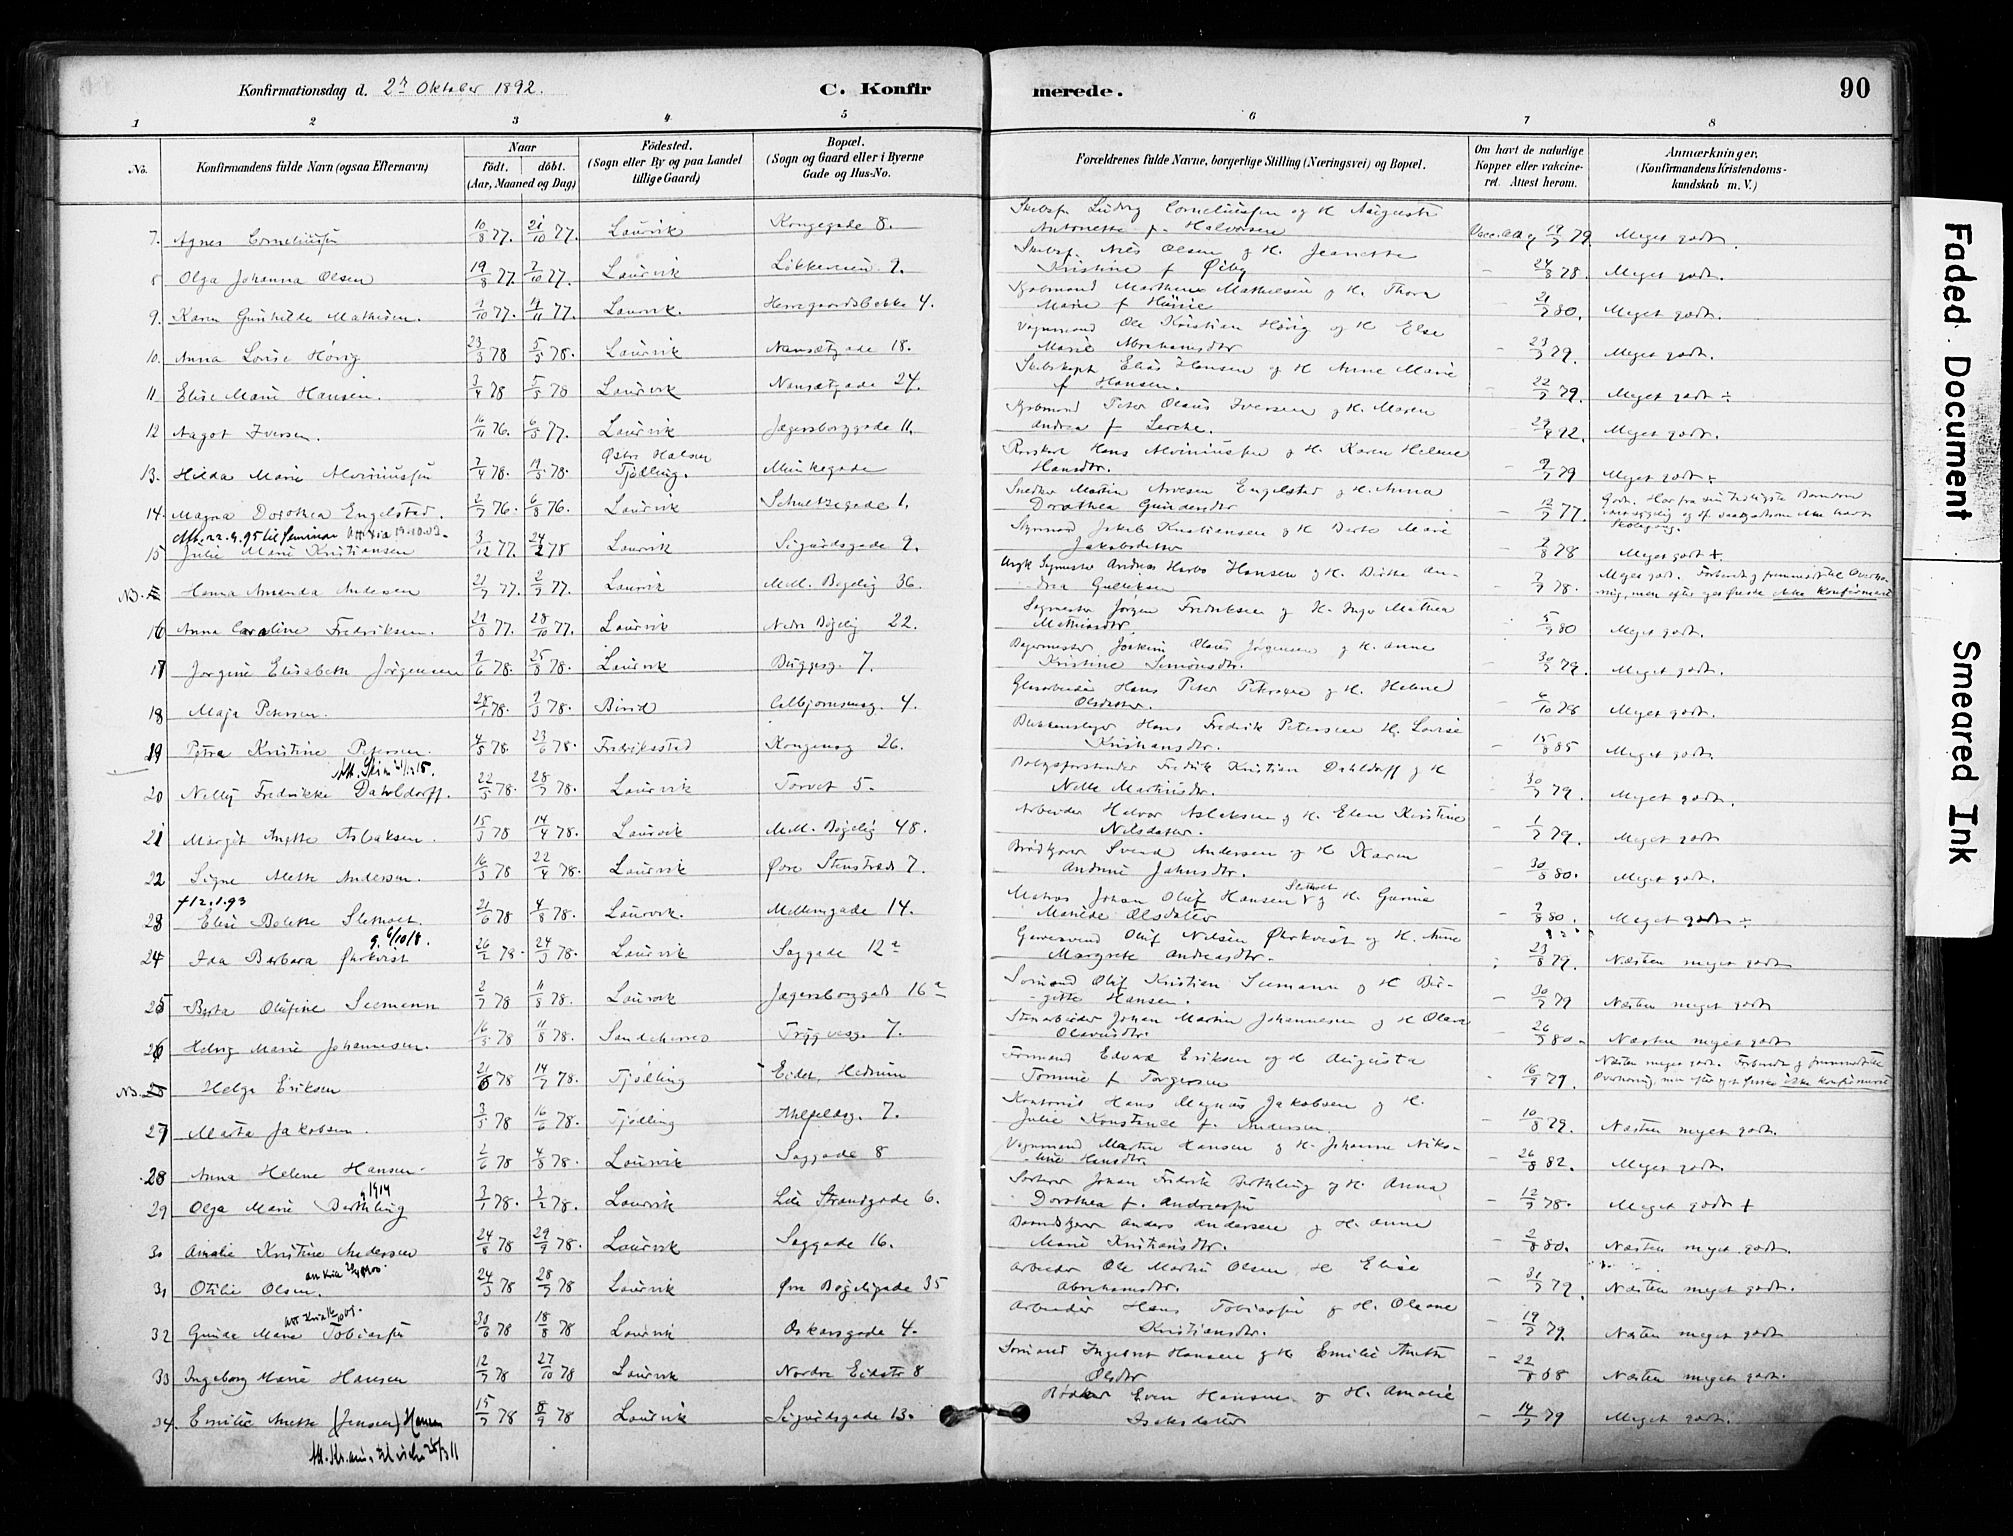 Konfirmationsdag d. 2den Oktober 1892.
C. Konfirmerede.
90
1 2 3 4 5 6 7 8
No.
Konfirmandens fulde Navn (ogsaa Efternavn)
Naar
født. døbt.
(Aar, Maaned og Dag)
Fødested.
(Sogn eller By og paa Landet
tillige Gaard)
Bopæl.
(Sogn og Gaard eller i Byerne
Gade og Hus-No.
Forældrenes fulde Navne, borgerlige Stilling (Næringsvei) og Bopæl.
Om havt de naturlige
Kopper eller vakcine-
ret. Attest herom.
Anmærkninger.
(Konfirmandens Kristendoms-
kundskab m. V.)
7. Agnes Corneliussen 10/8 77. 21/10 77. Laurvik Kongegade 8. Ludvig Corneliussen og H. Auguste
Antonette f. Halvorsen 19/7 79 Meget godt.
8 Olga Johanna Olsen 19/8 77. 7/10 77. Laurvik Løkkeveien 9. Niels Olsen og H. Jeanette
Kristine f. Øiby 24/8 78. Meget godt.
9. Karen Gunhilde Mathisen. 7/10 77. 11/11 77. Laurvik. Herregaardsbakke 4. Mathisen og H. Thora
Marie f. 21/7 80. Meget godt.
10. Anna Lovise Høvig 23/3 78 5/5 78. Laurvik Nansetgade 18. Vognmand Ole Kristian Høvig og H. Else
Marie Abrahamsdtr 23/7 79. Meget godt.
11 Elise Marie Hansen. 3/4 78 5/5 78 Laurvik Nansetgade 24. Skibskapt Elias Hansen og H. Anne Marie
f. Hansen. 22/7 79. Meget godt ÷
12 Aagot Iversen. 16/11 76. 6/5 77. Laurvik Jegersborggade 11. Peter Olaus Iversen og H. Maren
Andrea f. Lerche. 29/4 92. Meget godt.
13. Hilda Marie Alviniussen 7/4 78. 19/5 78. Østre Halsen
Tjølling. Munkegade Hans Alviniussen og H. Karen Helene
Hansdtr. 9/7 79 Meget godt ÷
14. Magna Dorothea Engelstad. 2/7 76. 6/8 76. Laurvik Schultzegade 1. Snedker Martin Arvesen Engelstad og H. Anna
Dorothea Gundersdtr 12/7 77.
Att. 22.4.95 til Seminar
15 Julie Marie Kristiansen 3/12 77. 24/2 78 Laurvik Sigurdsgade 9. Jakob Kristiansen og H. Berte Marie
Jakobsdatter 2/8 78 Meget godt +
NB. Hanna Amanda Andersen 21/7 77. 2/9 77. Laurvik Mell. Bøgelig 36. Andreas Hansen og H.
7/9 78. Meget godt. ikke konfirmeret
16 Anna Caroline Fredriksen. 21/8 77. 28/10 77. Laurvik Nedre Bøgelig 22. Sagmester Jørgen Fredriksen og H. Inger Mathea
Mathiasdtr 5/7 80 Meget godt.
17 Jørgine Elisabeth Jørgensen 9/6 78. 25/8 78. Laurvik Buggesg. 7. Bagermester Joakim Olaus Jørgensen og H. Anne
Kristine Simonsdtr. 30/7 79. Meget godt.
18 Maja Petersen. 28/1 78. 7/3 78. Birid 4. Glasarbeider Hans Peter Petersen og H. Helene
Olsdatter. 6/10 78 Meget godt.
19 Petra Kristine Petersen. 4/5 78 23/6 78. Fredriksstad Kongeveg 26. Hans Fredrik Petersen H. Lovise
Kristiansdtr. 15/8 85 Meget godt.
20 Nelly Fredrikke Dahldorff. 22/5 78. 28/7 78. Laurvik Torvet 5. Fredrik Kristian Dahldorff og H
Nelle Martinsdtr. 30/7 79. Meget godt.
21 Margit Anette Aslaksen. 15/3 78 14/4 78. Laurvik Mell. Bøgelig 48. Arbeider Halvor Aslaksen og H. Elen Kirstine
Nilsdatter. 1/7 79. Meget godt
22 Signe Alette Andersen. 16/3 78 22/4 78. Laurvik Øvre Stenstræde 7. Svend Andersen og H Karen
Andrine Jahnsdtr. 30/8 80. Meget godt.
† 12.1.93
23 Elise Bolette Sletholt. 21/6 78 4/8 78. Laurvik. Mellemgade 14. Matros Johan Oluf Hansen Sletholt og H. Gurine
Matilde Olsdatter 9/8 80. Meget godt ÷
g. 6/10/8.
24 Ida Barbara Ørkvist 26/2 78. 24/3 78. Laurvik Saggade 12a Garversvend Oluf Nilsen Ørkvist og H. Anne
Margrete Andreasdtr. 23/8 79. Næsten meget godt
25 Berta Olufine Seemann 2/7 78 11/8 78. Laurvik Jegersborggade 16a Sømand Oluf Kristian Seemann og H Bir-
gitte Hansen. 30/7 79 Næsten meget godt
26 Helvig Marie Johannesen. 16/5 78 11/8 78. Sandeherred Tryggvesg. 7. Stenarbeider Johan Martin Johannesen og H Olava
Olavesdtr. 26/5 80. Næsten meget godt
NB. Helga Eriksen 21/6 78 14/7 78. Tjølling Eidet, Hedrum Formand Edvard Eriksen og H Augusta
Tomine f. Torgersen 16/9 79. Næsten meget godt. ikke konfirmeret
27 Marta Jakobsen. 3/5 78 16/6 78. Tjølling Ahlefeldsg. 7. Kontorist Hans Magnus Jakobsen og H.
Julie Konstanse f. Andersen. 10/8 79. Næsten meget godt.
28 Anna Helene Hansen. 2/6 78 4/8 78. Laurvik Saggade 8 Vognmand Martin Hansen og H. Johanne Niko-
line Hansdtr. 26/8 82. Meget godt
g 1914
29 Olga Marie Berthling 3/1 78. 3/2 78. Laurvik Lille Strandgade 6. Johan Fredrik Berthling og H. Anna
Dorothea f. Andreassen 12/9 78. Meget godt +
30 Amalie Kristine Andersen 24/8 78 29/9 78. Laurvik Saggade 16. Anders Andersen og H. Anne
Marie Kristiansdtr. 2/8 80. Næsten meget godt.
31 Otilie Olsen. 24/3 78 28/7 78 Laurvik Øvre Bøgeligade 35 Arbeider Ole Martin Olsen H. Elise
Abrahamsdtr. 31/7 79. Næsten meget godt.
32 Gunda Marie Tobiassen 30/6 78 18/8 78 Laurvik Oskarsgade 4. Arbeider Hans Tobiassen og H. Oleane
Kristiansdtr. 19/7 79. Næsten meget godt
33 Ingeborg Marie Hansen 12/7 78 27/10 78 Laurvik Nordre Eidstr 8 Sømand Ingebret Hansen og H. Emilie Anette
Olsdtr 22/8 68 Næsten meget godt.
34. Emilie Anette (Jensen) Hansen 15/7 78 8/9 78 Laurvik Sigurdsgade 13. Bødker Even Hansen og H. Amalie
Isaksdatter 14/7 79 Meget godt.
Faded Document
Smeared Ink